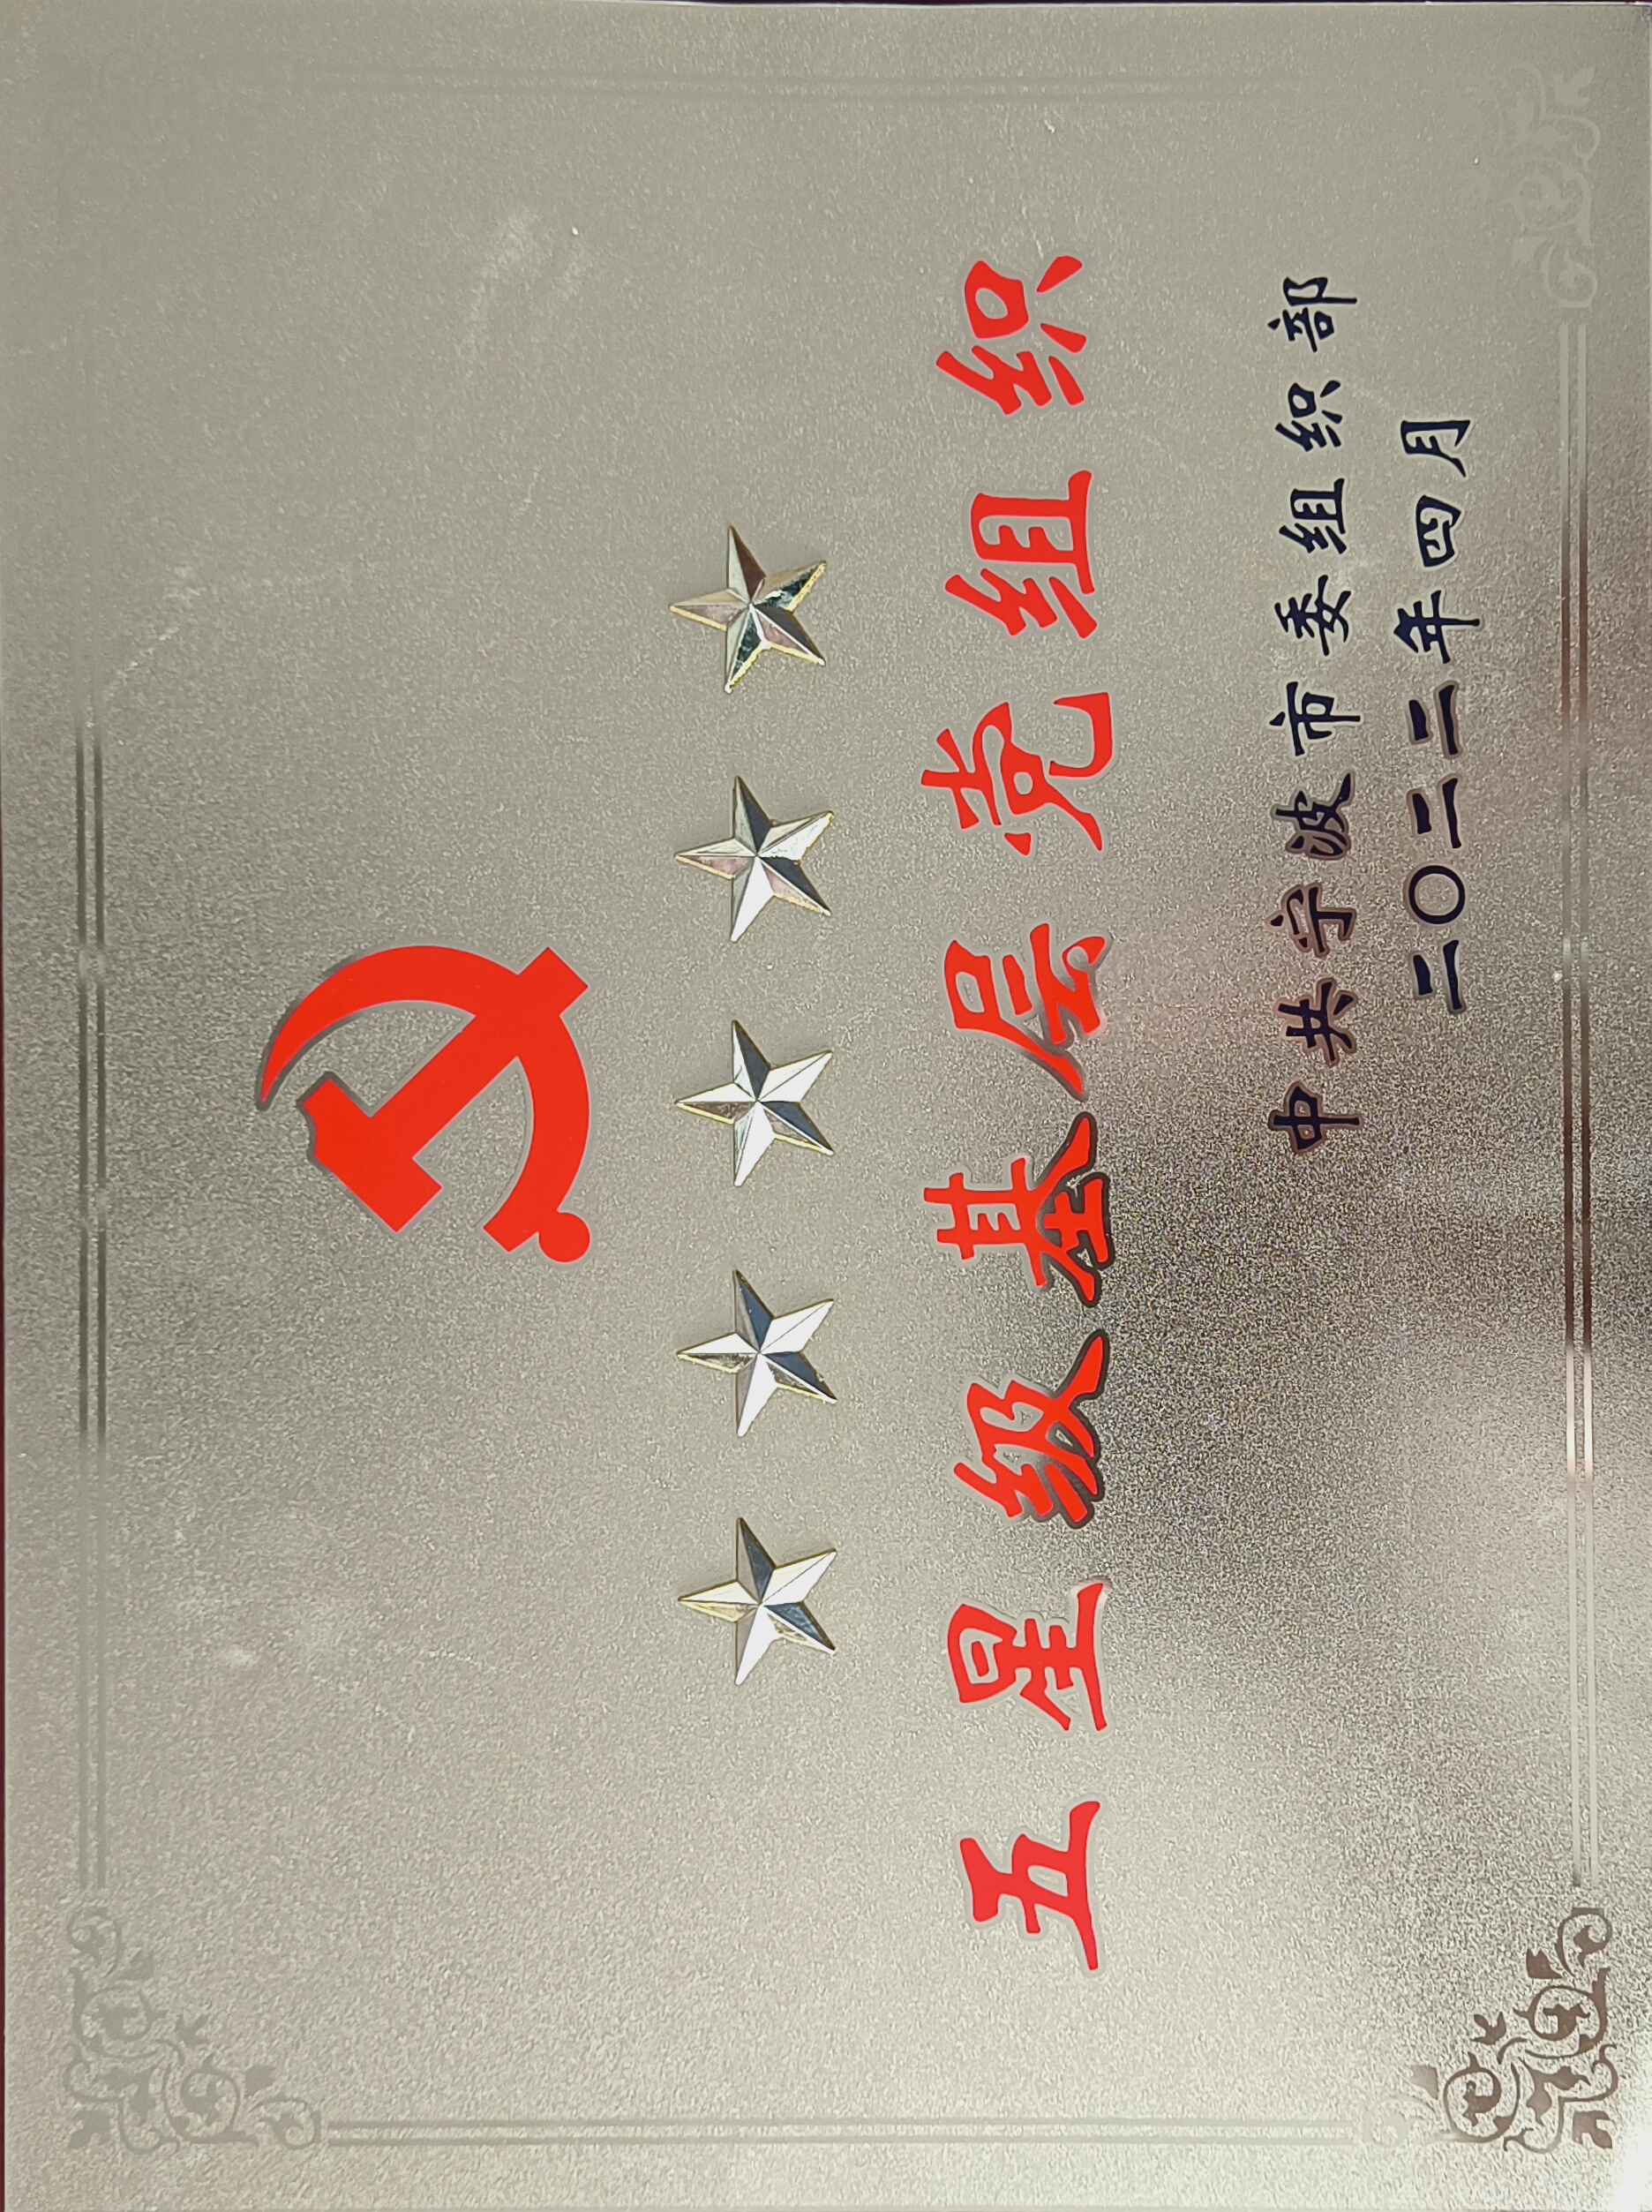 五星级基层党组织
中共宁波市委组织部
二〇二三年四月